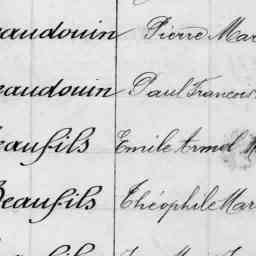 eaudouin Pierre Mar
eaudouin Paul Francois
eaufils Emile Armel
Beaufils Théophile Mar